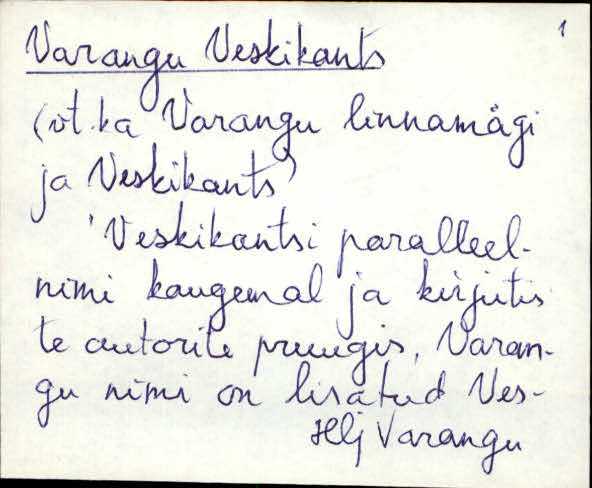 1
Varangu Veskikants
(vt. ka Varangu linnamägi
ja Veskikants)
'Veskikantsi paralleel-
nimi kaugemal ja kirjutis
te autorite pruugis, Varan-
gu nimi on lisatud Ves-
Hlj Varangu